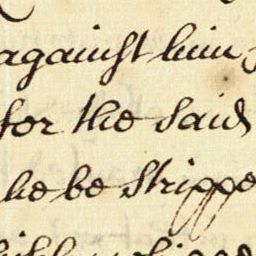 against him
for the Said
he be Strippe